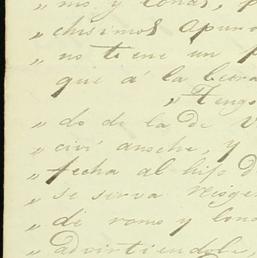 „ mo y lonas, p
„ chisimos apuro
„ no tiene un p
„ que á la letra
„ Tengo
„ do de la de V
„ civí anoche, y
„ fecha al hijo D
„ se sirva recoger
„ de romo y lona
„ advirtiendole,